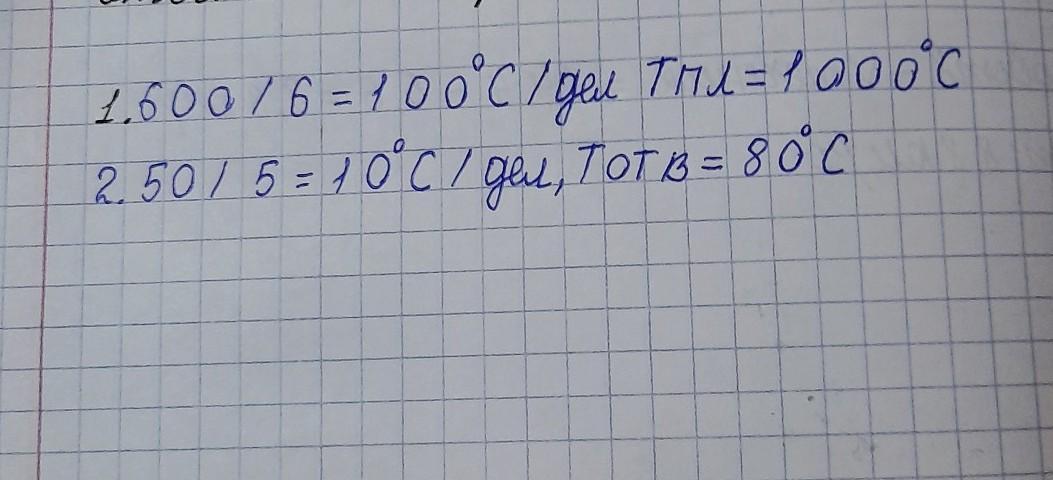 1.600/6=100°C/дел Тпл=1000°C
2.50/5=10°C/дел, Тотв=80°C